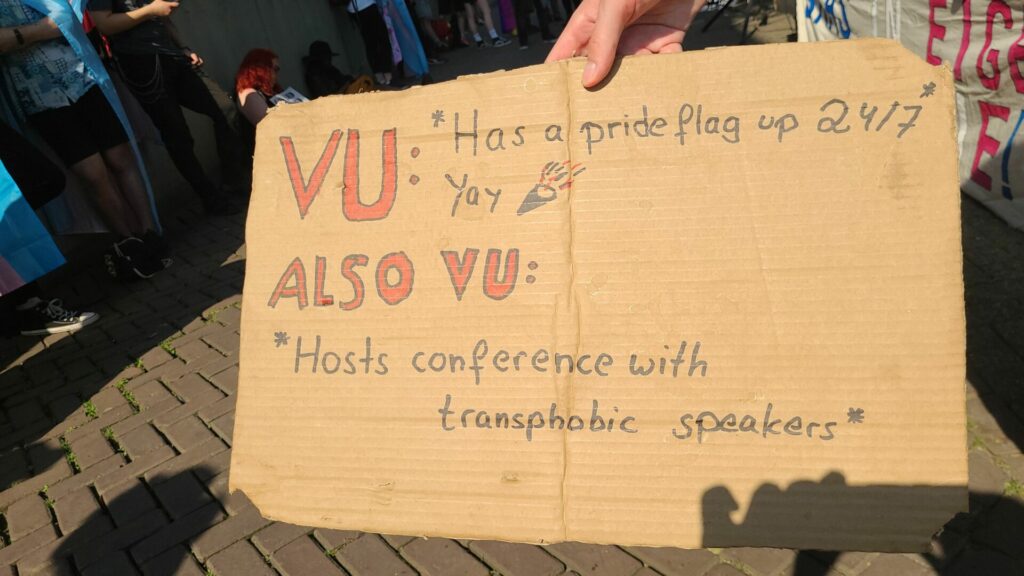 VU: *Has a pride flag up 24/7*
Yay
ALSO VU:
*Hosts conference with
transphobic speakers*